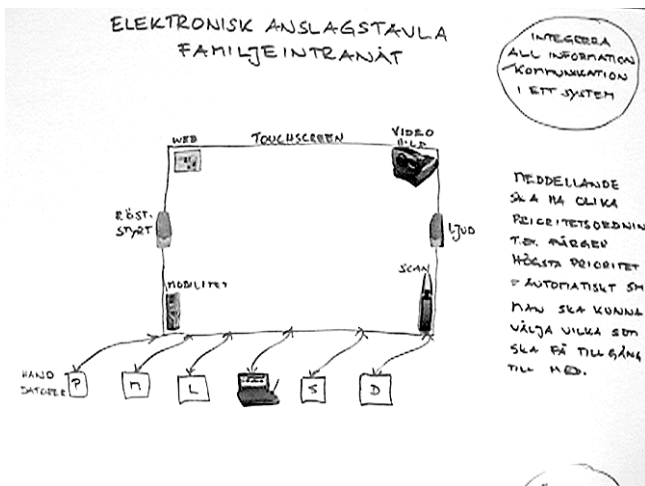 ELEKTRONISK ANSLAGSTAVLA
FAMILJEINTRANÄT
INTEGRERA
ALL INFORMATION
KOMMUNIKATION
I ETT SYSTEM
WEB
TOUCHSCREEN
VIDEO
BILD
RÖST-
STYRT
LJUD
MOBILITET
SCAN
HAND
DATORER
P
M
L
S
D
MEDDELLANDE
SKA HA OLIKA
PRIORITETSORDNIN
T.EX. FÄRGER
HÖGSTA PRIORITET
= AUTOMATISKT SM
MAN SKA KUNNA
VÄLJA VILKA SOM
SKA FÅ TILLGÅNG
TILL MED.